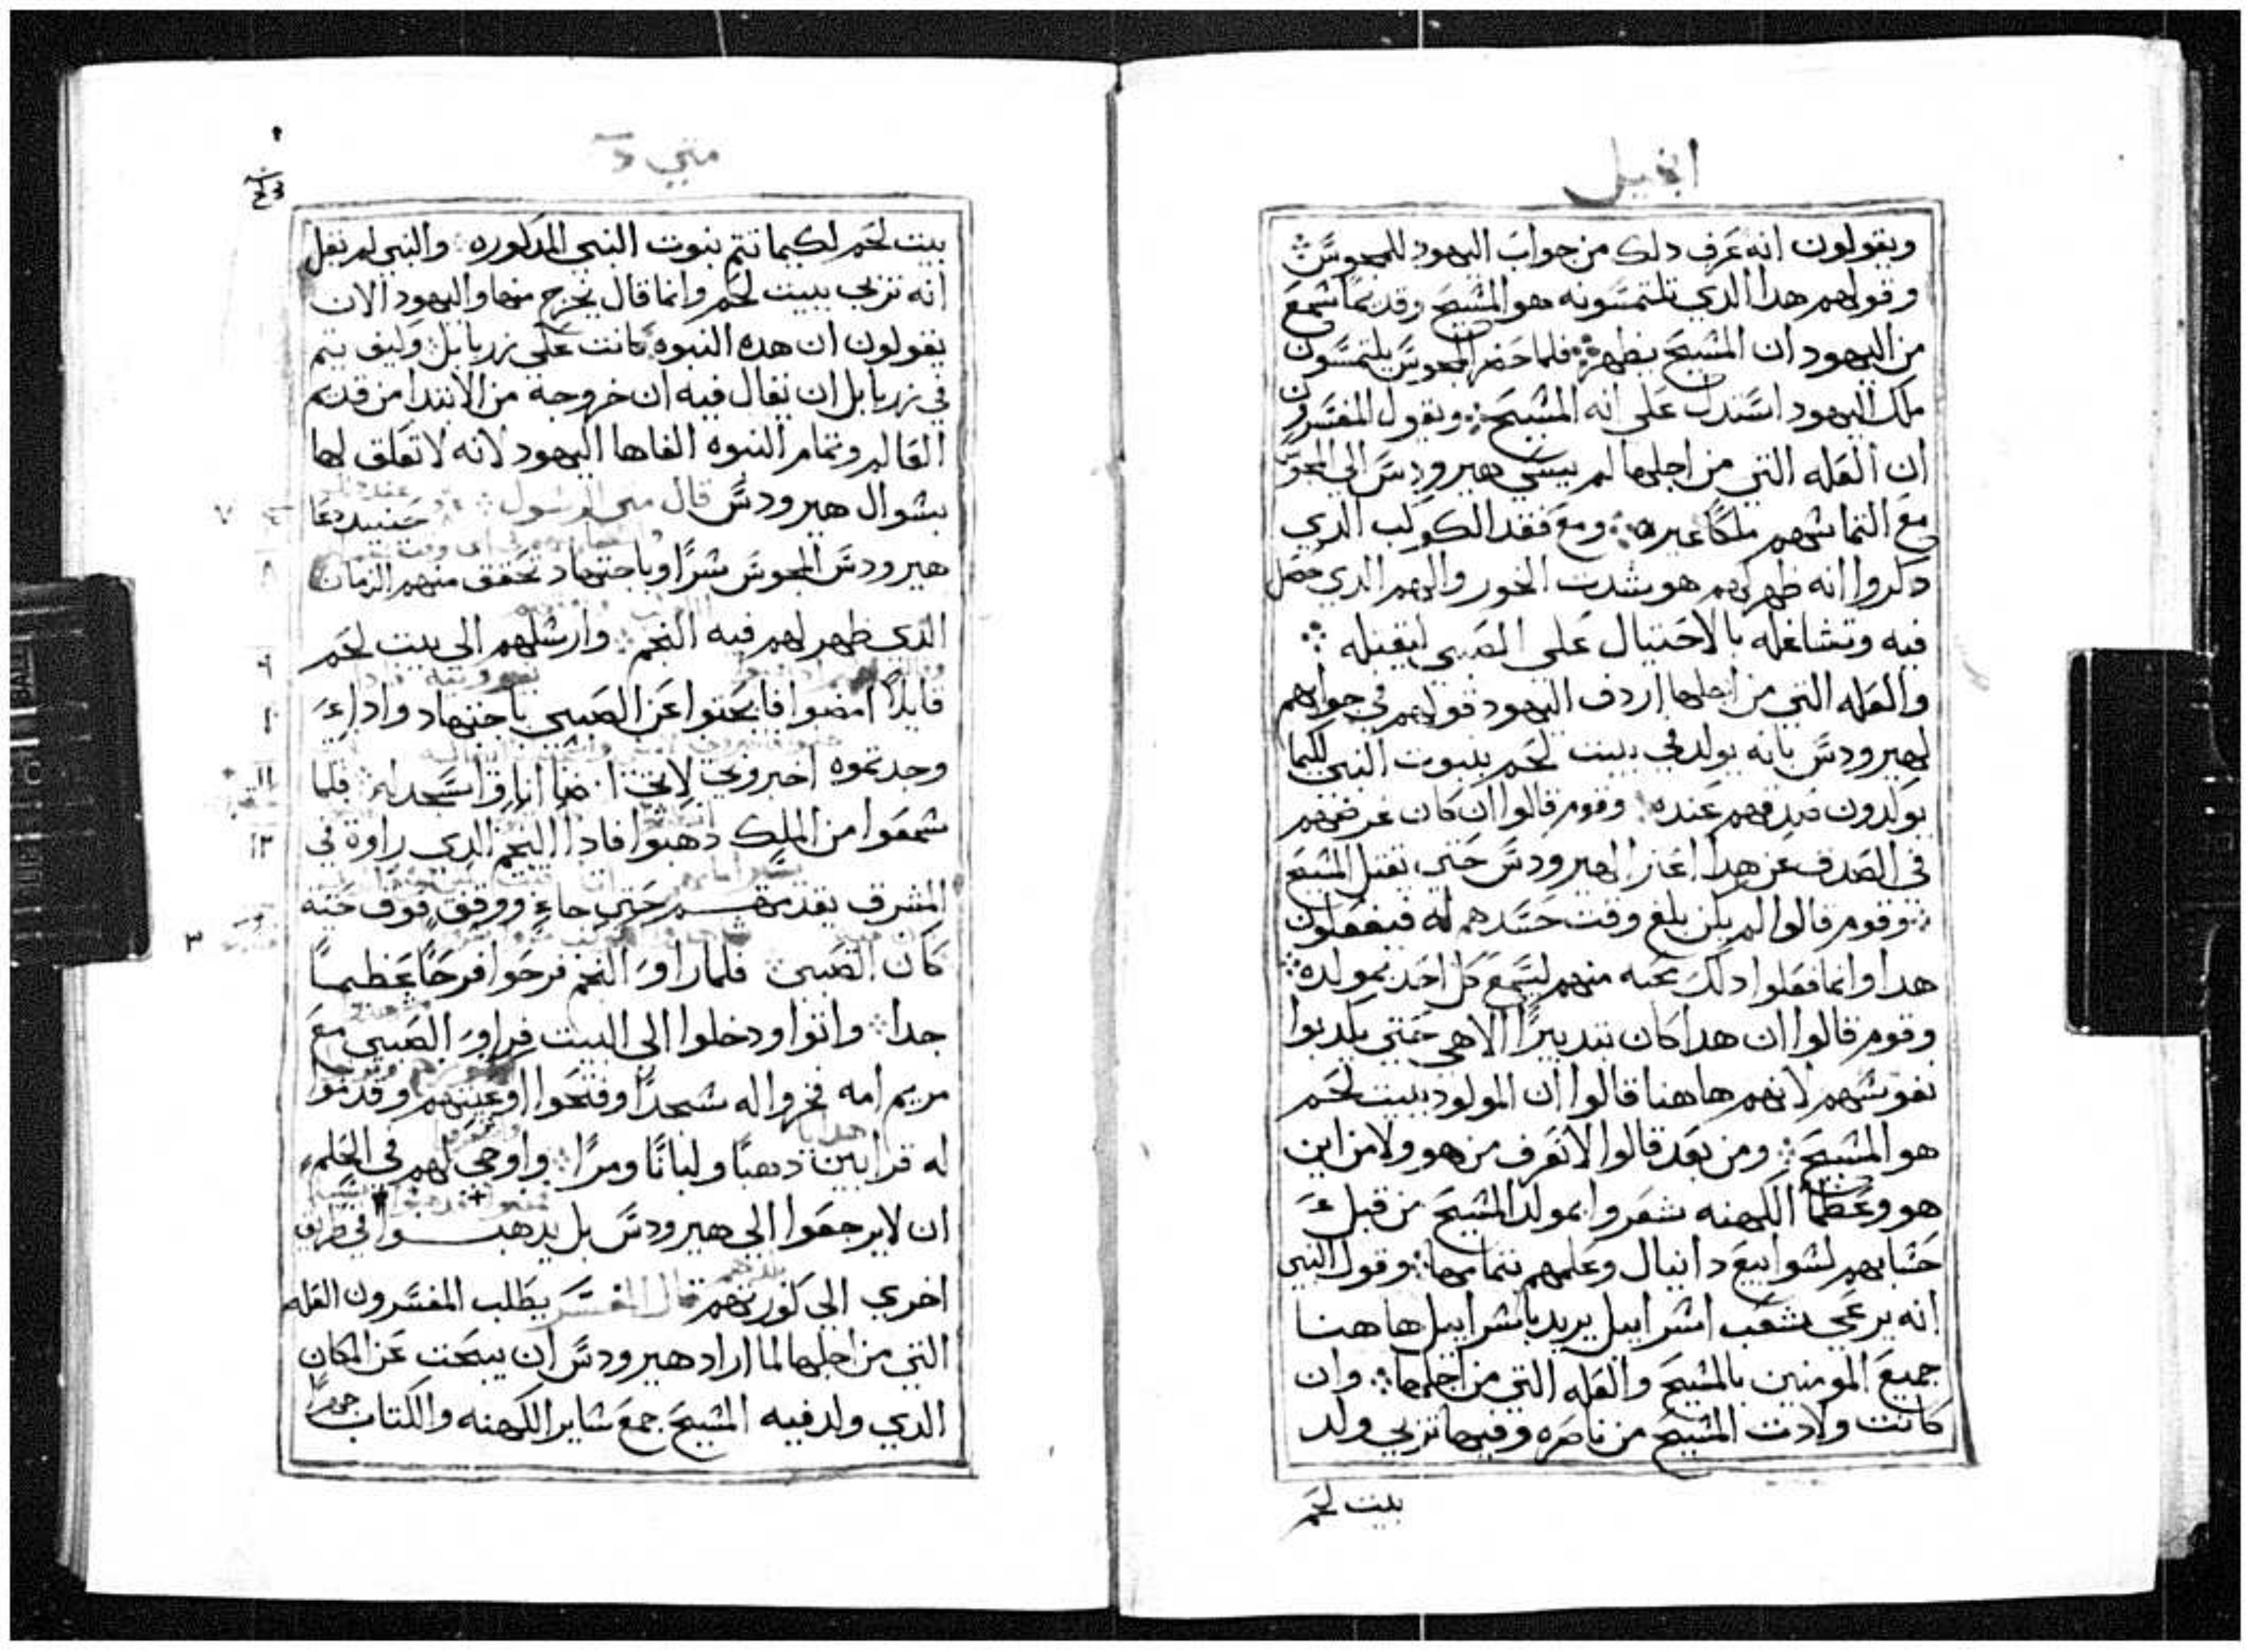 انجيل
ويقولون انه عرف دلك من جواب اليهود للمجوس
وقولهم هدا الدي تلتمسونه هو المسيح وقديما سمع
من اليهود ان المسيح يظهر فلما حضر المجوس يلتمسون
ملك اليهود استدل على انه المسيح ويقول المفسرون
ان العله التي من اجلها لم يسي هيرودس الي المجوس
مع التماسهم ملكا غيره ومع فقد الكوكب الدي
دكروا انه ظهر لهم هو شدت الخور والهم الدي حصل
فيه وتشاغله بالاحتيال علي الصبي ليقتله
والعله التي من اجلها اردف اليهود قولهم في جوابهم
لهيرودس بانه يولد في بيت لحم بنبوت النبي لكيما
يولدون صدقهم عنده وقوم قالوا ان كان غرضهم
في الصدف عن هدا اغازا لهيرودس حتي يقتل المسيح
وقوم قالوا لم يكن بلغ وقت حسدهم له فيفعلون
هدا وانما فعلوا دلك محبه منهم ليسمع كل احد بمولده
وقوم قالوا ان هدا كان بتدبيرا الاهي حتي يكدبوا
نفوسهم لانهم هاهنا قالوا ان المولود ببيت لحم
هو المسيح ومن بعد قالوا لا نعرف من هو ولا من اين
هو وعظما الكهنه شعروا بمولد المسيح من قبل
حسابهم لسوابيع دانيال وعلمهم بتمامها وقول النبي
انه يرعي شعب اسراييل يريد باسراييل هاهنا
جميع المومنين بالمسيح والعله التي من اجلها وان
كانت ولادت المسيح من ناصره وفيها تربي ولد
بيت لحم
متي
بيت لحم لكيما تتم بنوت النبي المدكوره والنبي لم يقل
انه تربي ببيت لحم وانما قال يخرج منها واليهود الان
يقولون ان هده النبوه كانت على زربابل وكيف يتم
في زربابل ان يقال فيه ان خروجه من الابتدا من قديم
العالم وتمام النبوه الفاها اليهود لانه لا تعلق لها
بسوال هيرودس قال متى الرسول حينيد دعا
هيرودس المجوس سرا وباجتهاد تحقق منهم الزمان
الدي ظهر لهم فيه النجم وارسلهم الى بيت لحم
قايلا امضوا فابحتوا عن الصبي باجتهاد وادا
وجدتموه اخبروني لاتي انا واسجد له فلما
سمعوا من الملك دهبوا فادا النجم الدي راوه في
المشرق يقدمهم حتي جاء ووقف فوق حيت
كان الصبي فلما راوا النجم فرحوا فرحا عظيما
جدا واتوا ودخلوا الي البيت فراوا الصبي مع
مريم امه فخروا له سجدا وفتحوا اوعيتهم وقدموا
له قرابين دهبا ولبانا ومرا واوحي لهم في الحلم
ان لا يرجعوا الي هيرودس بل يدهبوا في طريق
اخري الي كورتهم قال المفسر يطلب المفسرون العله
التي من اجلها لما اراد هيرودس ان يبحت عن المكان
الدي ولد فيه المسيح جمع ساير الكهنه والكتاب